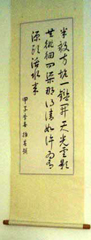 半畝方塘一鑑開天光雲影
共徘徊問渠那得清如許為有
源頭活水來